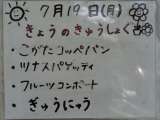 7月19日(月)
きょうのきゅうしょく
・こがたコッペパン
・ツナスパゲッティ
・フルーツコンポート
・ぎゅうにゅう